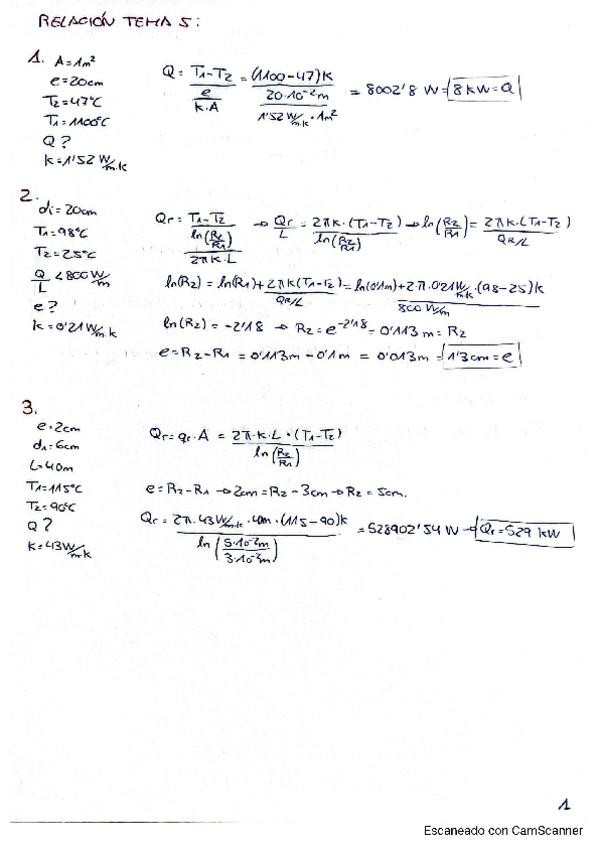 RELACIÓN TEMA 5:
1. A=1m²
e=20cm
T2=47°C
T1=1100°C
Q?
k=1'52 W/m.k
Q = T1-T2 / (e / k.A) = (1100-47)k / (20·10⁻²m / 1'52 W/m.k · 1m²) = 8002'8 W = 8 kW = Q
2.
di=20cm
T1=98°C
T2=25°C
Q/L < 800 W/m
e?
k=0'21 W/m.k
Qr = T1-T2 / (ln(R2/R1) / 2πk.L) → Qr/L = 2πk.(T1-T2) / ln(R2/R1) → ln(R2/R1) = 2πk.(T1-T2) / QR/L
ln(R2) = ln(R1) + 2πk(T1-T2) / QR/L = ln(0'1m) + 2.π.0'21 W/m.k .(98-25)k / 800 W/m
ln(R2) = -2'18 → R2 = e^-2'18 = 0'113 m = R2
e = R2-R1 = 0'113m - 0'1m = 0'013m = 1'3cm = e
3.
e=2cm
d1=6cm
L=40m
T1=115°C
T2=90°C
Q?
k=43 W/m.k
Qr = qr.A = 2π.k.L.(T1-T2) / ln(R2/R1)
e = R2-R1 → 2cm = R2 - 3cm → R2 = 5cm.
Qr = 2π.43 W/m.k . 40m . (115-90)k / ln(5·10⁻²m / 3·10⁻²m) = 528902'54 W → Qr = 529 kW
1
Escaneado con CamScanner